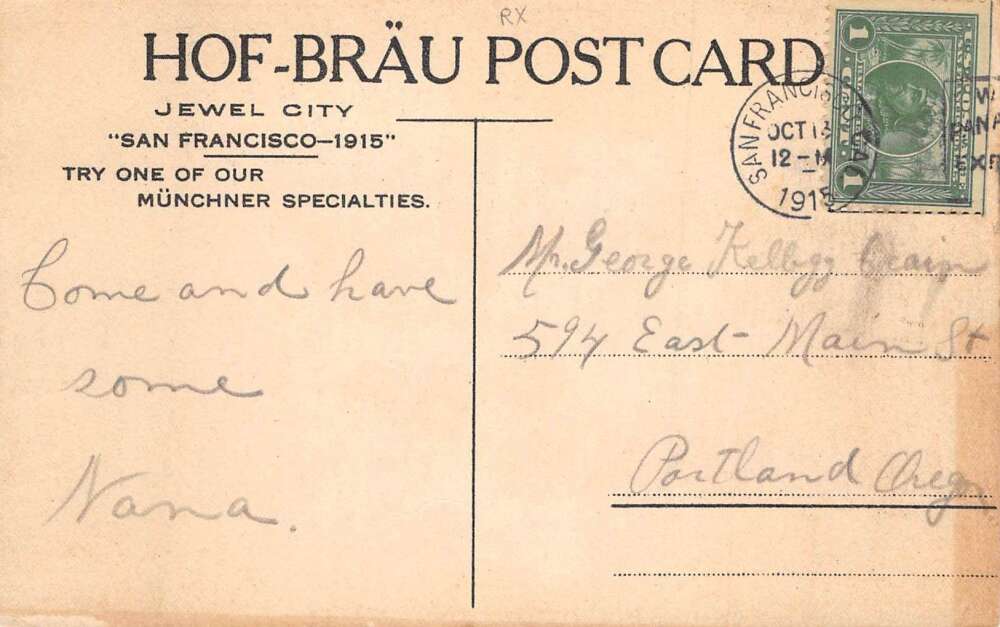 RX
HOF-BRÄU POST CARD
JEWEL CITY
"SAN FRANCISCO—1915"
TRY ONE OF OUR
MÜNCHNER SPECIALTIES.
1 1
SAN FRANCISCO CAL
OCT 13
12-M
1915
Come and have
some
Nana.
Mr. George Kellogg
594 East Main St
Portland Oreg